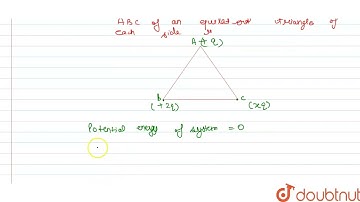 ABC of an equilateral triangle of
each side
A (+q)
B C
(+2q) (xq)
Potential energy of system = 0
doubtnut